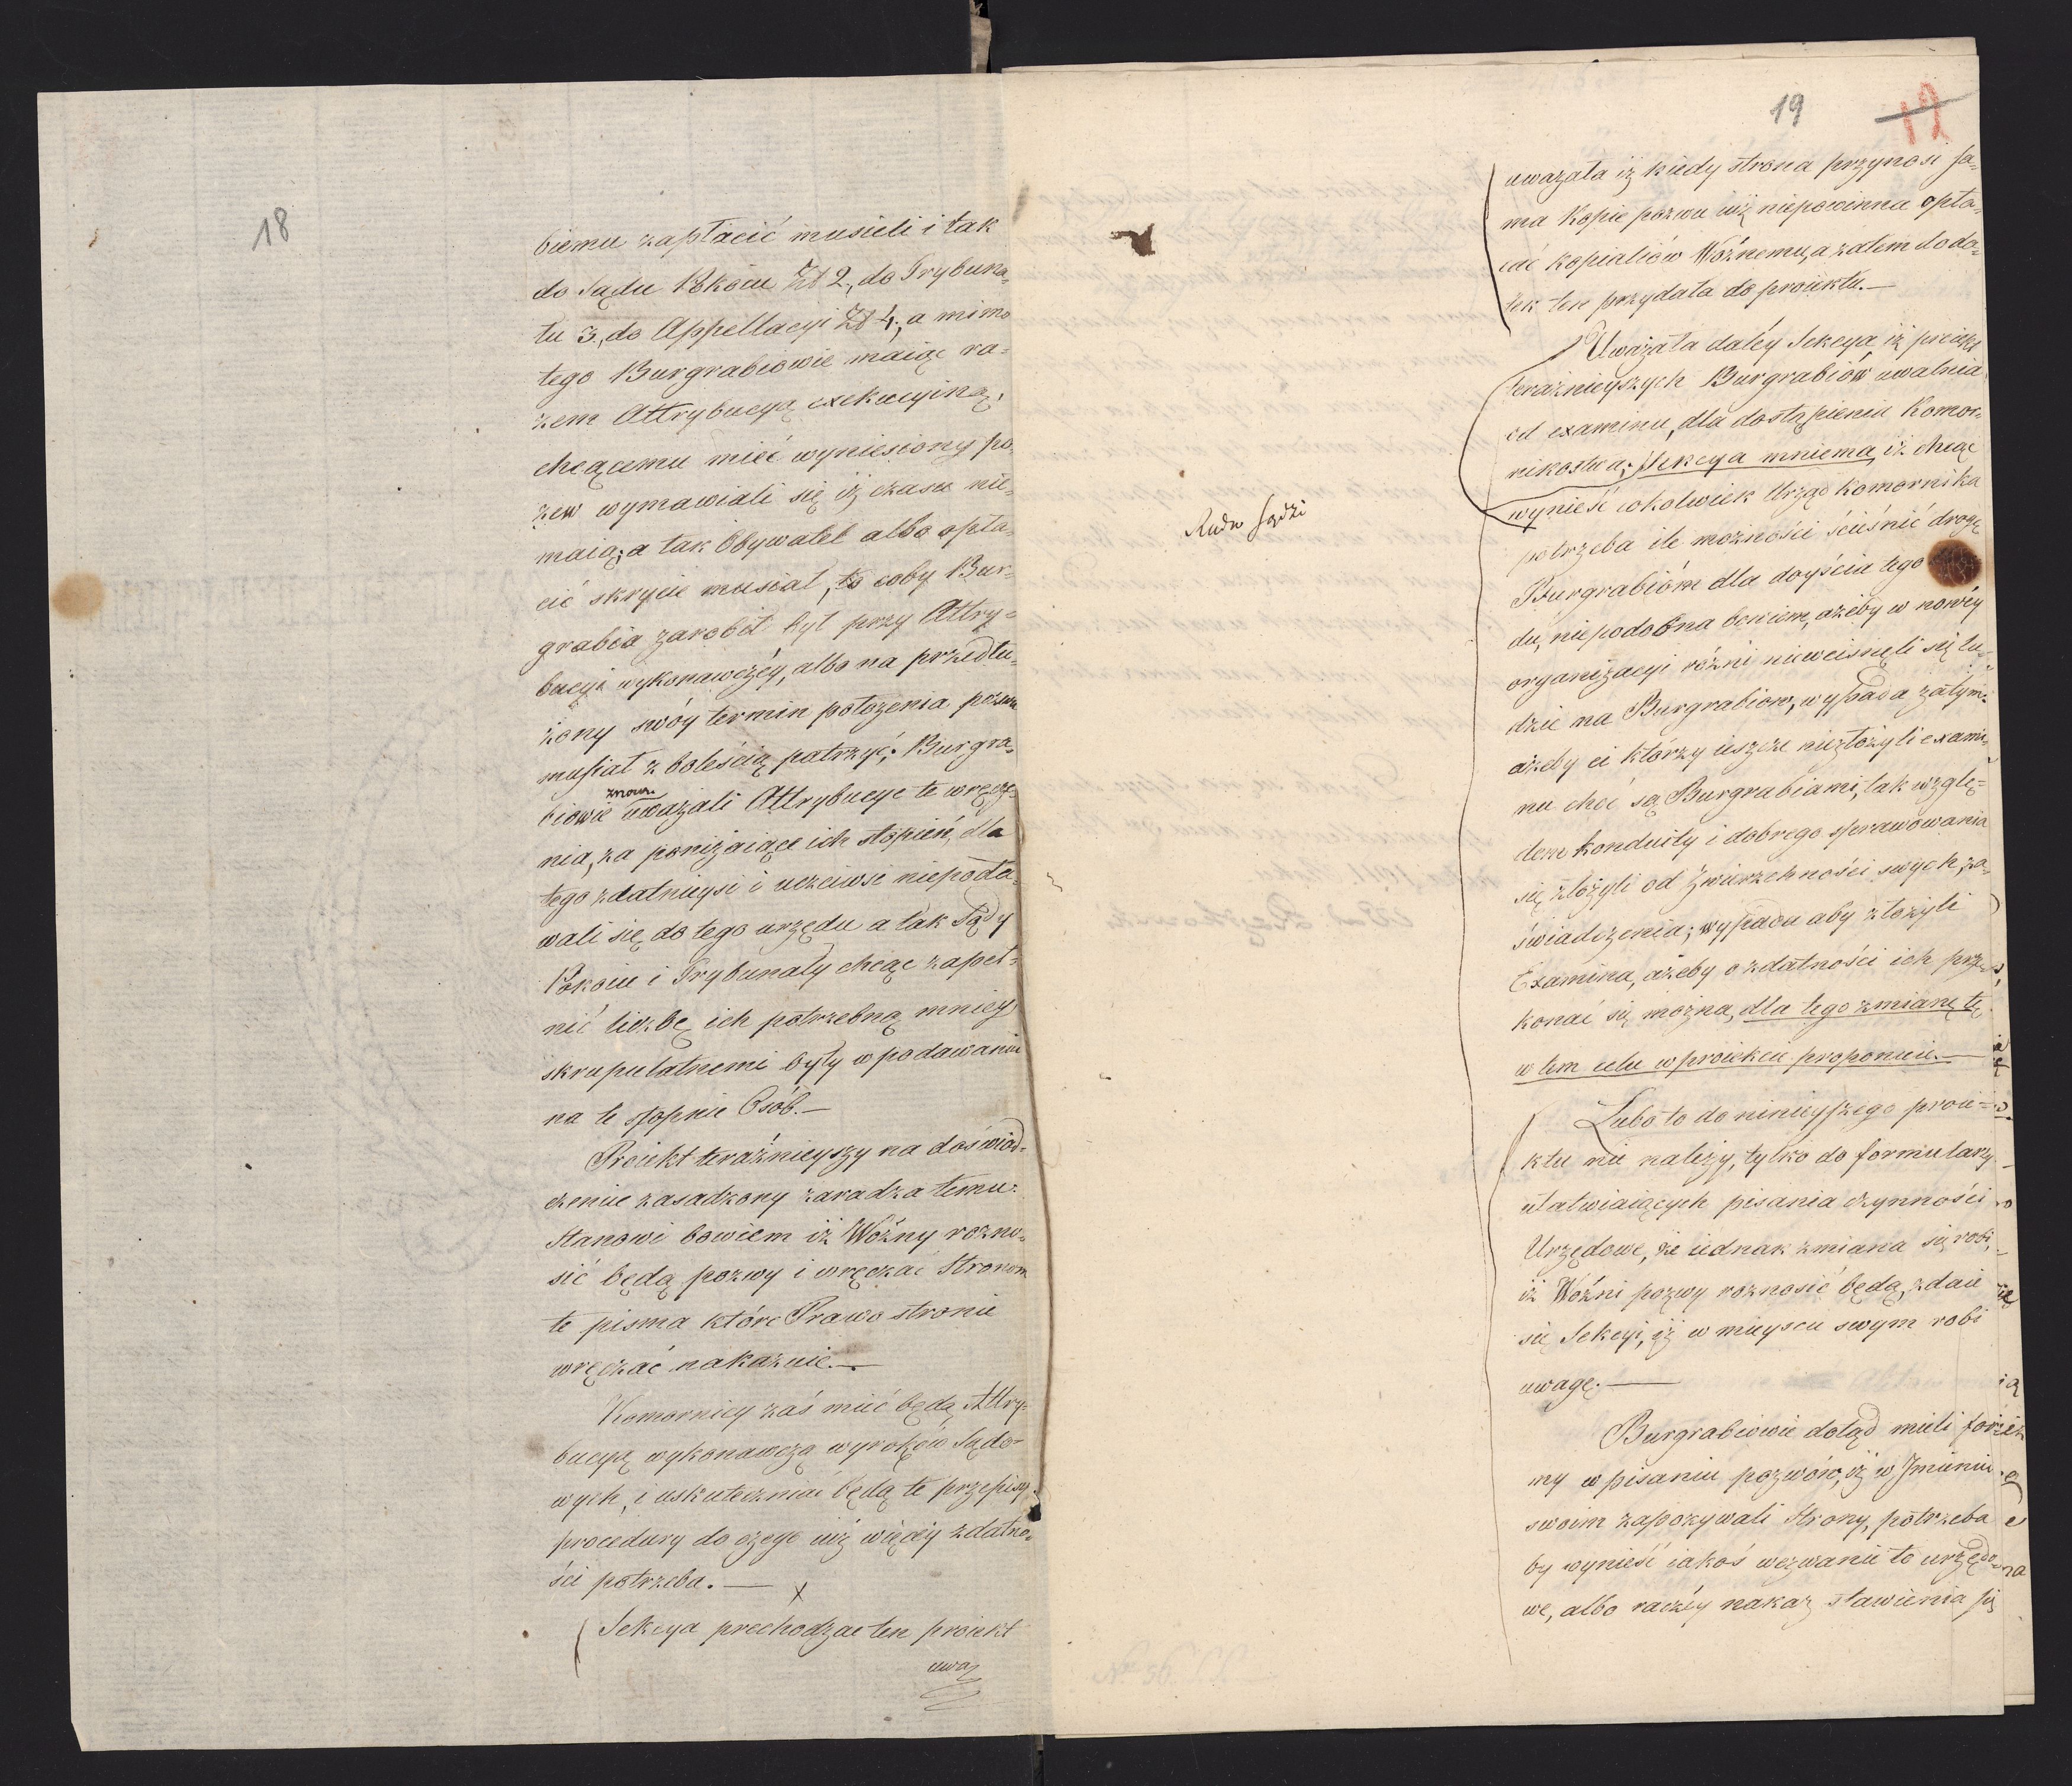 18
biemu zapłacić musieli i tak
do Sądu Pokoiu Zł 2, do Trybuna-
łu 3., do Appellacyi Zł 4., a mimo
tego Burgrabiowie maiąc ra-
zem Attrybucyą exekucyiną,
chcącemu mieć wyniesiony po-
zew wymawiali się iż czasu nie-
maią; a tak Obywatel albo opła-
cić skrycie musiał, to coby Bur-
grabia zarobił był przy Attry-
bucyi wykonawczéy, albo na przedłu-
żony swóy termin położenia pozwu
musiał z boleścią patrzyć; Burgra-
biowie znowu uważali Attrybucye te wręcze-
nia, za poniżaiące ich stopień, dla
tego zdatnieysi i uczciwsi niepoda-
wali się do tego urzędu a tak Sądy
Pokoiu i Trybunały chcąc zapeł-
nić liczbę ich potrzebną mniey
skrupulatnemi były w podawaniu
na te stopnie Osób.—
Proiekt teraźnieyszy na doświad-
czeniu zasadzony zaradza temu:
Stanowi bowiem iż Woźny rozno-
sić będą pozwy i wręczać Stronom
te pisma które Prawo stronie
wręczać nakazuie.—
Komornicy zaś mieć będą Attry-
bucyą wykonawczą wyroków Sądo-
wych, i uskuteczniać będą te przepisy
procedury do czego iuż więcéy zdatno-
ści potrzeba.— x
Sekcya przechodząc ten proiekt
uwa
19
12
uważała iż kiedy strona przynosi sa-
ma Kopie pozwu iuż niepowinna opła-
cać kopialiów Woźnemu, a zatem doda-
tek ten przydała do proiektu.—
Uważała daléy Sekcya iż proiekt
teraźnieyszych Burgrabiów uwalnia
od examinu, dla dostąpienia Komor-
nikostwa; Sekcya mniema, iż chcąc
wynieść cokolwiek Urząd Komornika
potrzeba ile możności ścieśnić drogę
Burgrabióm dla doyścia tego
du, niepodobna bowiem, ażeby w nowéy
organizacyi różni niewcisnęli się lu-
dzie na Burgrabiow, wypada zatym:
ażeby ci którzy ieszcze niezłożyli exami-
nu choć są Burgrabiami, tak wzglę-
dem konduity i dobrego sprawowania
się złożyli od Zwierzchności swych, za-
świadczenia; wypada aby złożyli
Examina, ażeby o zdatności ich prze-
konać się można, dla tego zmianę tę
w tem celu w proiekcie proponuie.—
Rada Sądzi
Lubo to do ninieyszego proie-
ktu nie należy, tylko do formularzy
ułatwiaiących pisania czynności
Urzędowe, że iednak zmiana się robi,
iż Woźni pozwy roznosić będą, zdaie
się Sekcyi, iż w mieyscu swym robi
uwagę.—
Burgrabiowie dotąd mieli for-
my w pisaniu pozwów, iż w Imieniu
swoim zapozywali Strony, potrzeba
by wynieść iakoś wezwanie to urzędo-
we, albo raczéy nakaz stawienia się